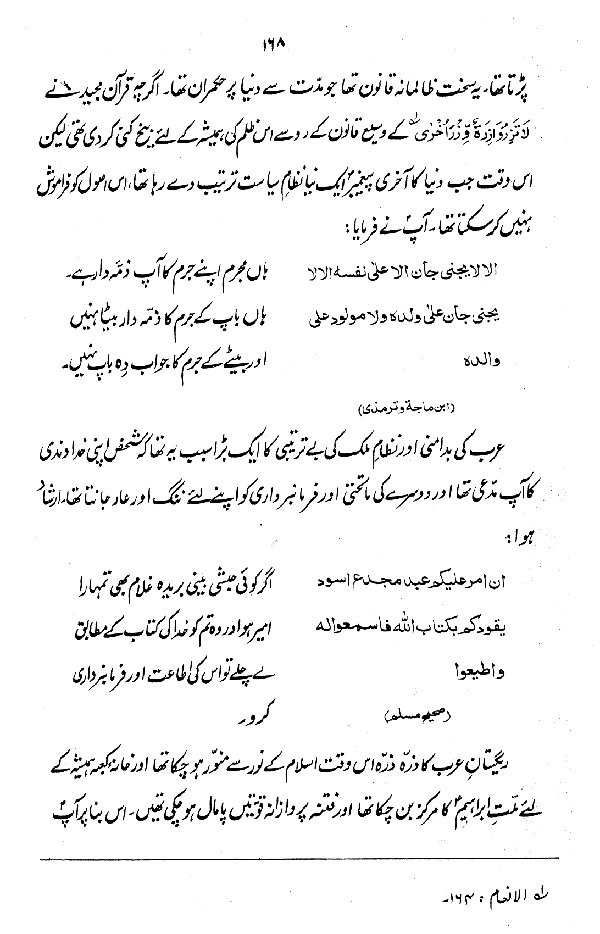 ۱۶۸
پڑتا تھا۔ یہ سخت ظالمانہ قانون تھا جو مدّت سے دنیا پر حکمران تھا۔ اگرچہ قرآن مجید نے
لَا تَزِرُ وَازِرَةٌ وِّزْرَ اُخْرٰی؂۱ کے وسیع قانون کے رو سے اس ظلم کی ہمیشہ کے لئے بیخ کنی کر دی تھی لیکن
اس وقت جب دنیا کا آخری پیغمبرؐ ایک نیا نظامِ سیاست ترتیب دے رہا تھا، اس اصول کو فراموش
نہیں کر سکتا تھا۔ آپؐ نے فرمایا:
الا لا یجنی جان الا علیٰ نفسہ الا لا ہاں مجرم اپنے جرم کا آپ ذمّہ دار ہے۔
یجنی جان علیٰ ولدہ ولا مولود علی ہاں باپ کے جرم کا ذمّہ دار بیٹا نہیں
والدہ اور بیٹے کے جرم کا جواب دِہ باپ نہیں۔
(ابن ماجۃ و ترمذی)
عرب کی بدامنی اور نظامِ ملک کی بے ترتیبی کا ایک بڑا سبب یہ تھا کہ ہر شخص اپنی خداوندی
کا آپ مدّعی تھا اور دوسرے کی ماتحتی اور فرمانبرداری کو اپنے لئے ننگ اور عار جانتا تھا۔ ارشاد
ہوا:
ان امر علیکم عبد مجدع اسود اگر کوئی حبشی بینی بریدہ غلام بھی تمہارا
یقودکم بکتاب اللہ فاسمعوا لہ امیر ہو اور وہ تم کو خدا کی کتاب کے مطابق
واطیعوا لے چلے تو اس کی اطاعت اور فرمانبرداری
(صحیح مسلم) کرو۔
ریگستانِ عرب کا ذرّہ ذرّہ اس وقت اسلام کے نور سے منوّر ہو چکا تھا اور خانہ کعبہ ہمیشہ کے
لئے ملّتِ ابراہیمؑ کا مرکز بن چکا تھا اور فتنہ پردازانہ قوتیں پامال ہو چکی تھیں۔ اس بنا پر آپؐ
؂۱ الانعام : ۱۶۴۔